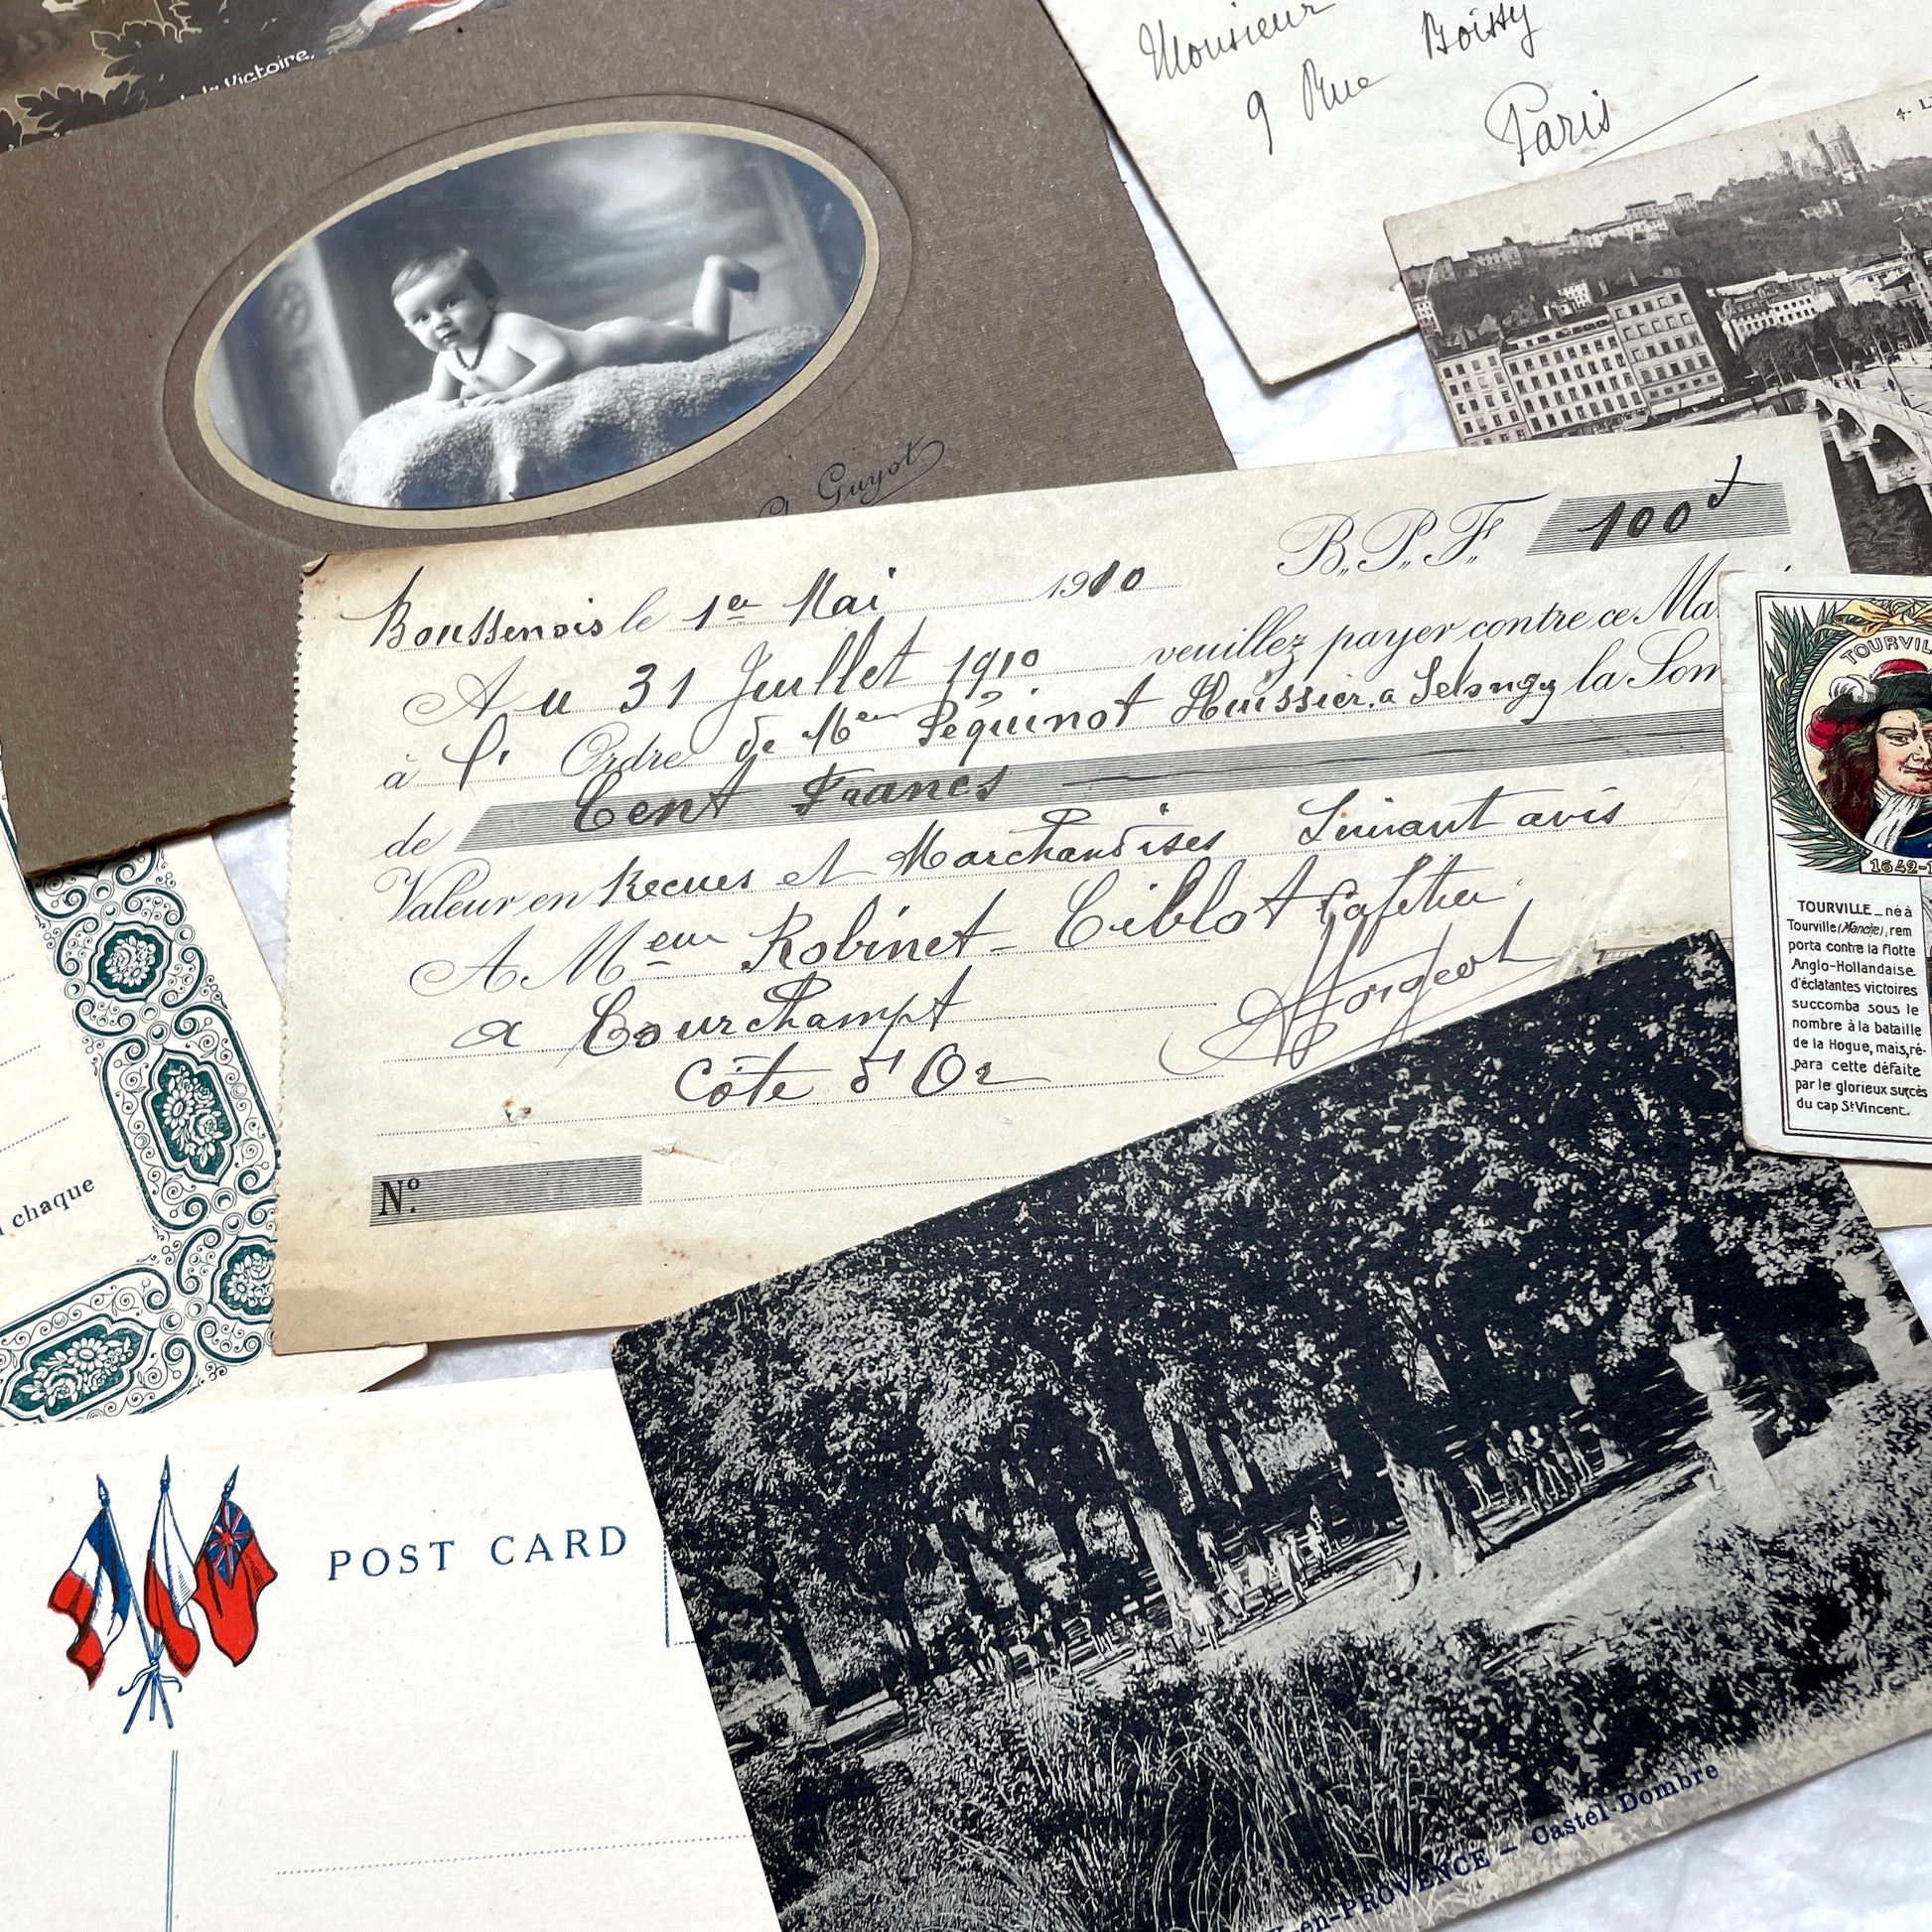 la Victoire.
Monsieur Boissy
9 Rue
Paris
4. L
G. Guyot
B.P.F. 100
Boussenois le 1er Mai 1910
Au 31 Juillet 1910 veuillez payer contre ce Ma
à l' Ordre de Me Péquinot Huissier a Selongy la Som
de Cent Francs
Valeur en Recues et Marchandises Suivant avis
A Meur Robinet-Ciblot Cafetier
a Courchampt
Côte d'Or
N°.
TOURVIL
1642-1
TOURVILLE _ né à
Tourville (Manche), rem
porta contre la flotte
Anglo-Hollandaise
d'éclatantes victoires
succomba sous le
nombre à la bataille
de la Hogue, mais, ré-
para cette défaite
par le glorieux succès
du cap St Vincent.
chaque
POST CARD
en-PROVENCE - Castel-Dombre